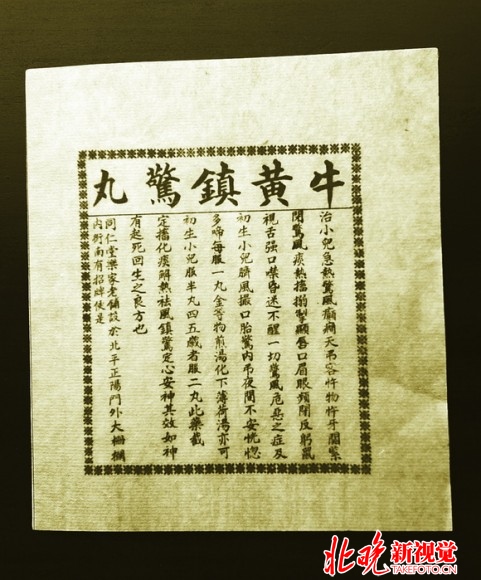 牛黃鎮驚丸
治小兒急熱驚風癲癇天弔客忤物忤牙關緊
閉驚風痰熱搐搦掣顫唇口眉眼頻閉反躬鼠
視舌强口噤昏迷不醒一切驚風危惡之症及
初生小兒臍風撮口胎驚內弔夜間不安恍惚
多啼每服一丸金等物煎湯化下薄荷湯亦可
初生小兒服半丸四五歲者服二丸此藥截
定搐化痰解熱祛風鎮驚定心安神其效如神
有起死回生之良方也
同仁堂樂家老鋪設於北平正陽門外大柵欄
內街南有招牌便是
北晚新視覺
TAKEFOTO.CN